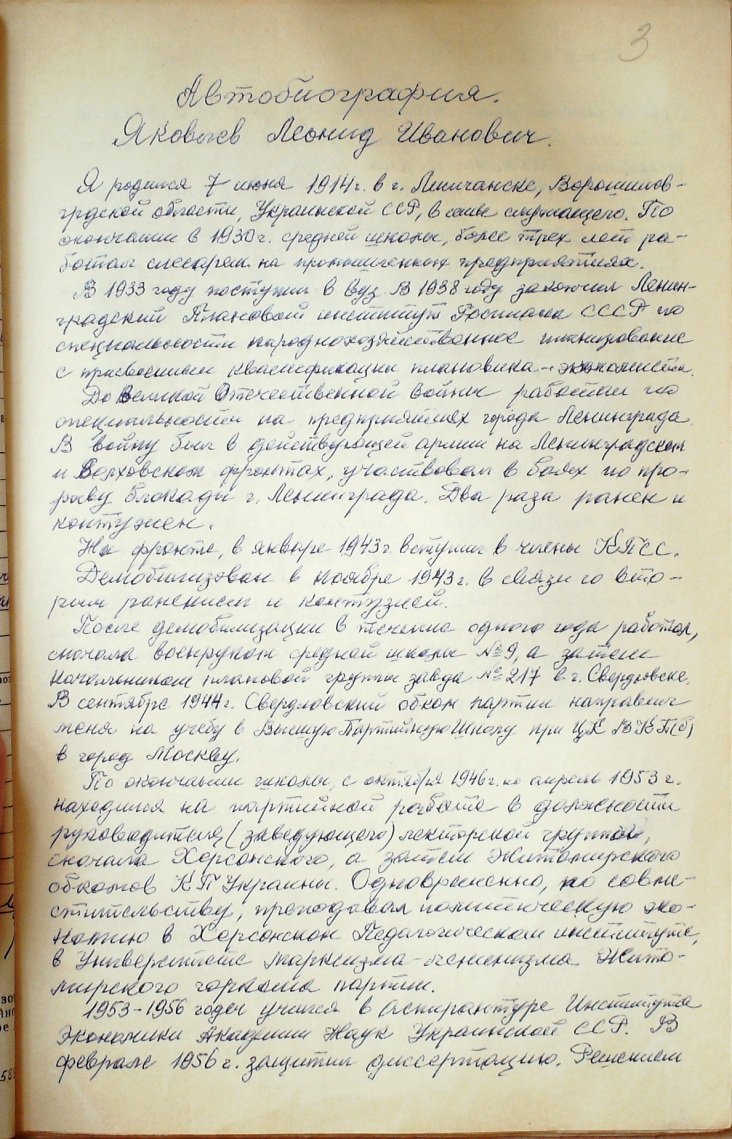 3
Автобиография.
Яковлев Леонид Иванович.
Я родился 7 июня 1914 г. в г. Лисичанске, Ворошилов-
градской области, Украинской ССР, в семье служащего. По
окончании в 1930 г. средней школы, более трех лет ра-
ботал слесарем на промышленных предприятиях.
В 1933 году поступил в вуз. В 1938 году закончил Ленин-
градский Плановый институт Госплана СССР по
специальности народнохозяйственное планирование
с присвоением квалификации плановика-экономиста.
До Великой Отечественной войны работал по
специальности на предприятиях города Ленинграда.
В войну был в действующей армии на Ленинградском
и Волховском фронтах, участвовал в боях по про-
рыву блокады г. Ленинграда. Два раза ранен и
контужен.
На фронте, в январе 1943 г. вступил в члены КПСС.
Демобилизован в ноябре 1943 г. в связи со вто-
рым ранением и контузией.
После демобилизации в течение одного года работал,
сначала военруком средней школы № 9, а затем
начальником плановой группы завода № 217 в г. Свердловске.
В сентябре 1944 г. Свердловский обком партии направил
меня на учебу в Высшую Партийную Школу при ЦК ВКП(б)
в город Москву.
По окончании школы, с октября 1946 г. по апрель 1953 г.
находился на партийной работе в должности
руководителя (заведующего) лекторской группой,
сначала Херсонского, а затем Житомирского
обкомов КП Украины. Одновременно, по совме-
стительству, преподавал политическую эко-
номию в Херсонском Педагогическом институте,
в Университете марксизма-ленинизма Жито-
мирского горкома партии.
1953-1956 годы учился в аспирантуре Института
Экономики Академии Наук Украинской ССР. В
феврале 1956 г. защитил диссертацию. Решением